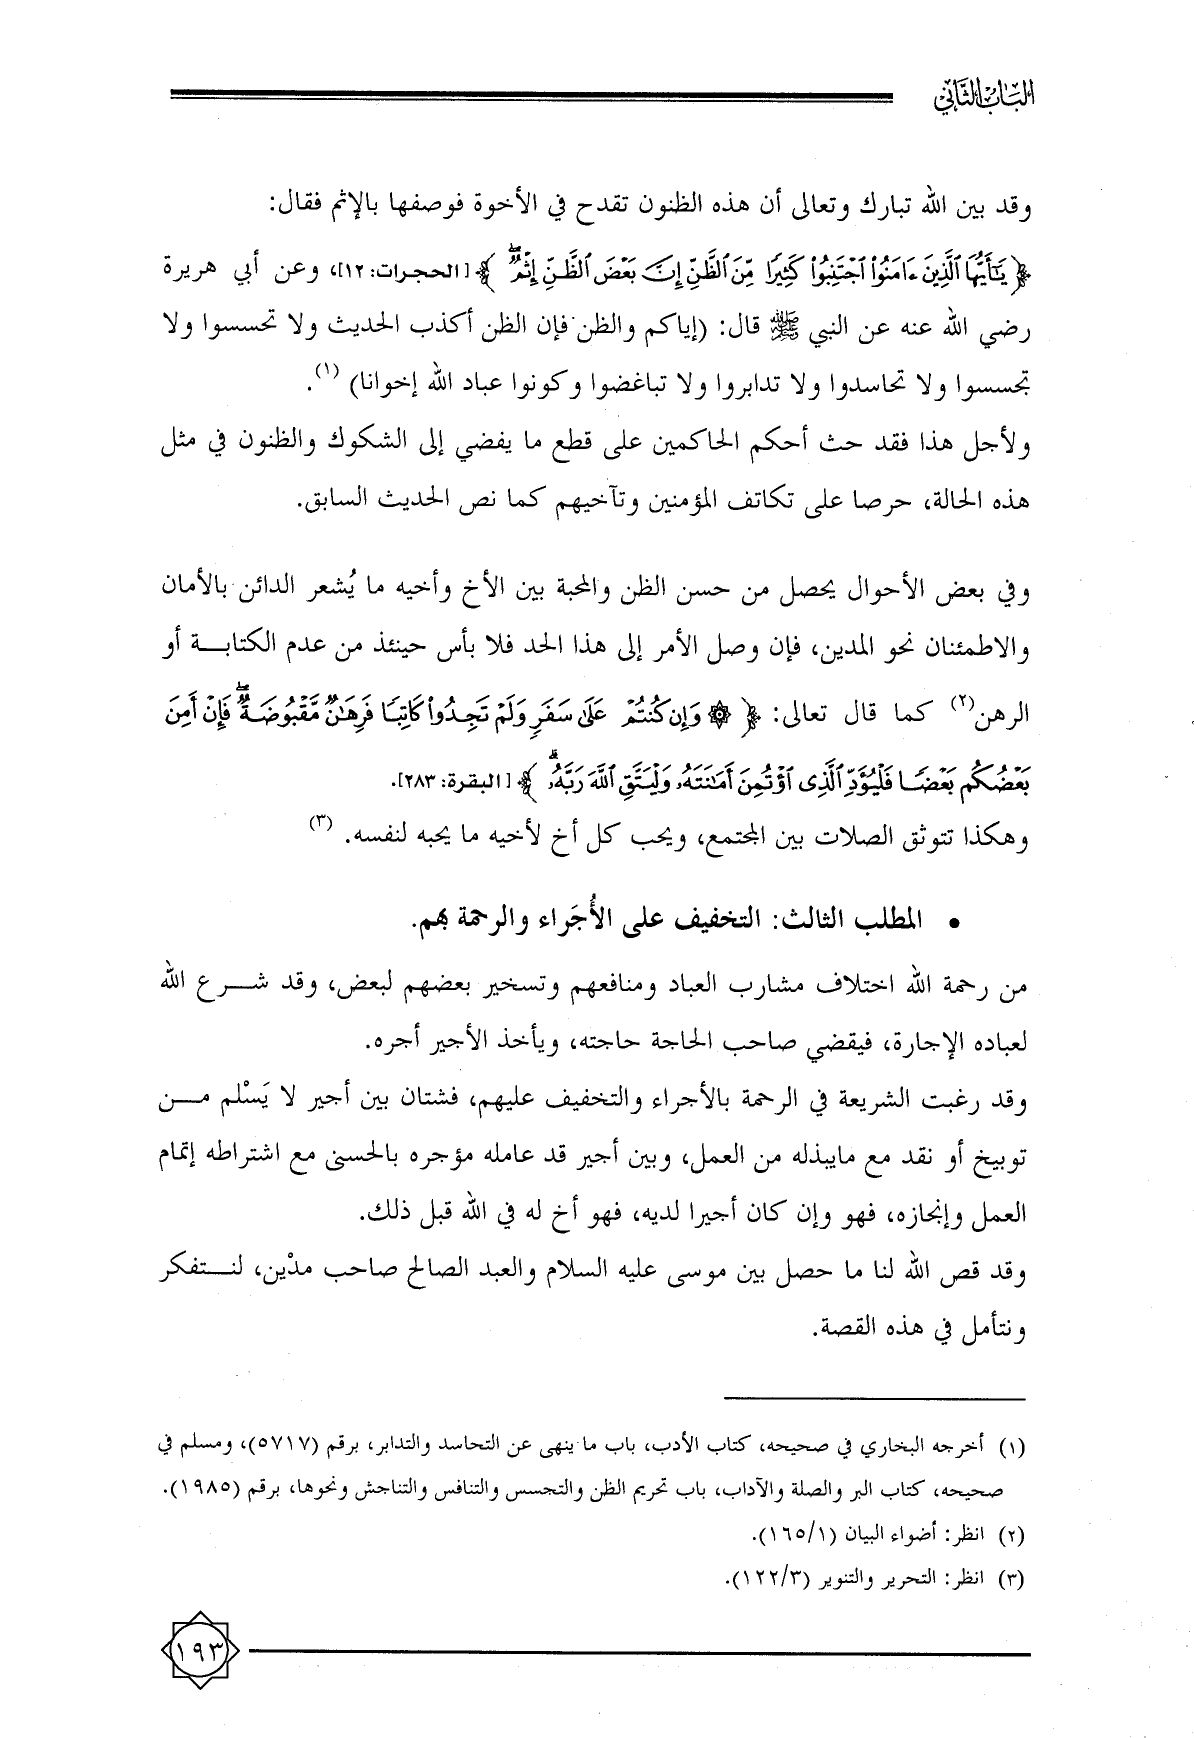 الباب الثاني
وقد بين الله تبارك وتعالى أن هذه الظنون تقدح في الأخوة فوصفها بالإثم فقال:
﴿يَٰٓأَيُّهَا ٱلَّذِينَ ءَامَنُوا۟ ٱجْتَنِبُوا۟ كَثِيرًا مِّنَ ٱلظَّنِّ إِنَّ بَعْضَ ٱلظَّنِّ إِثْمٌ ۖ﴾ [الحجرات: ١٢]، وعن أبي هريرة
رضي الله عنه عن النبي ﷺ قال: (إياكم والظن فإن الظن أكذب الحديث ولا تحسسوا ولا
تجسسوا ولا تحاسدوا ولا تدابروا ولا تباغضوا وكونوا عباد الله إخوانا) (١).
ولأجل هذا فقد حث أحكم الحاكمين على قطع ما يفضي إلى الشكوك والظنون في مثل
هذه الحالة، حرصا على تكاتف المؤمنين وتآخيهم كما نص الحديث السابق.
وفي بعض الأحوال يحصل من حسن الظن والمحبة بين الأخ وأخيه ما يُشعر الدائن بالأمان
والاطمئنان نحو المدين، فإن وصل الأمر إلى هذا الحد فلا بأس حينئذ من عدم الكتابـــة أو
الرهن(٢) كما قال تعالى: ﴿ ۞ وَإِن كُنتُمْ عَلَىٰ سَفَرٍ وَلَمْ تَجِدُوا۟ كَاتِبًا فَرِهَٰنٌ مَّقْبُوضَةٌ ۖ فَإِنْ أَمِنَ
بَعْضُكُم بَعْضًا فَلْيُؤَدِّ ٱلَّذِى ٱؤْتُمِنَ أَمَٰنَتَهُۥ وَلْيَتَّقِ ٱللَّهَ رَبَّهُۥ ۗ ﴾ [البقرة: ٢٨٣].
وهكذا تتوثق الصلات بين المجتمع، ويحب كل أخ لأخيه ما يحبه لنفسه. (٣)
• المطلب الثالث: التخفيف على الأُجَراء والرحمة بهم.
من رحمة الله اختلاف مشارب العباد ومنافعهم وتسخير بعضهم لبعض، وقد شـــرع الله
لعباده الإجارة، فيقضي صاحب الحاجة حاجته، ويأخذ الأجير أجره.
وقد رغبت الشريعة في الرحمة بالأجراء والتخفيف عليهم، فشتان بين أجير لا يَسْلم مـــن
توبيخ أو نقد مع مايبذله من العمل، وبين أجير قد عامله مؤجره بالحسنى مع اشتراطه إتمام
العمل وإنجازه، فهو وإن كان أجيرا لديه، فهو أخ له في الله قبل ذلك.
وقد قص الله لنا ما حصل بين موسى عليه السلام والعبد الصالح صاحب مدْين، لنـــتفكر
ونتأمل في هذه القصة.
(١) أخرجه البخاري في صحيحه، كتاب الأدب، باب ما ينهى عن التحاسد والتدابر، برقم (٥٧١٧)، ومسلم في
صحيحه، كتاب البر والصلة والآداب، باب تحريم الظن والتجسس والتنافس والتناجش ونحوها، برقم (١٩٨٥).
(٢) انظر: أضواء البيان (١٦٥/١).
(٣) انظر: التحرير والتنوير (١٢٢/٣).
١٩٣